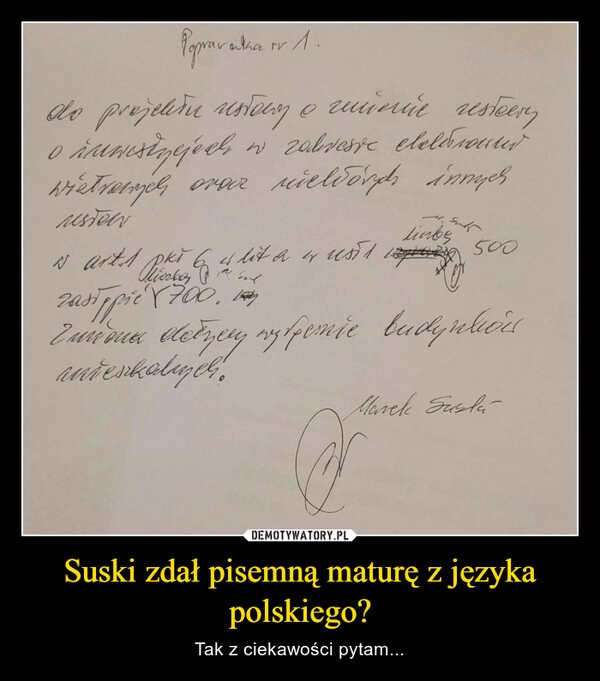 Poprawka nr 1.
do projektu ustawy o zmianie ustawy
o inwestycjach w zakresie elektrowni
wiatrowych oraz niektórych innych
ustaw
liczbę
w art. 1 pkt 6 lit a w ust 1 500
liczbą
zastąpić 700.
Zmiana dotyczy wyłącznie budynków
mieszkalnych.
Marek Suski
DEMOTYWATORY.PL
Suski zdał pisemną maturę z języka
polskiego?
Tak z ciekawości pytam...